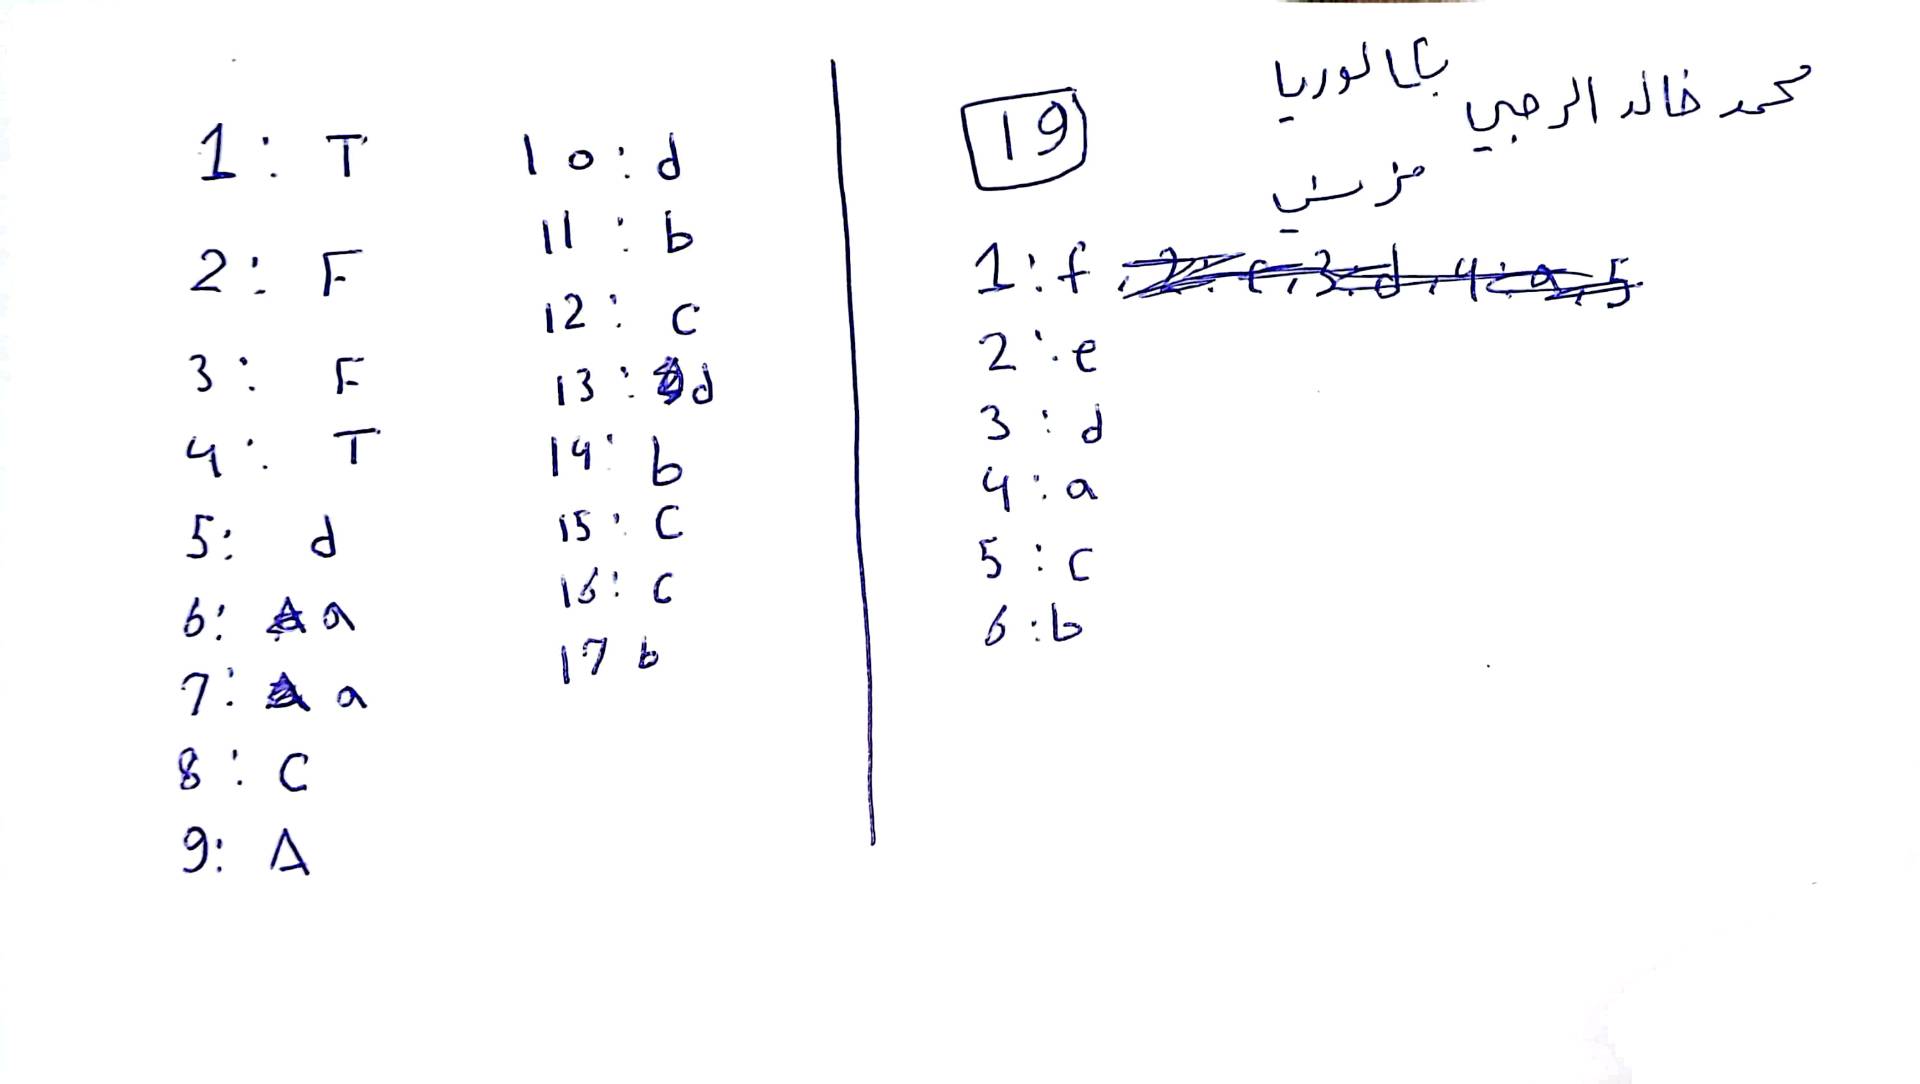 1: T
2: F
3: F
4: T
5: d
6: a
7: a
8: C
9: A
10: d
11: b
12: c
13: d
14: b
15: C
16: C
17 b
محمد خالد الرجبي
بكالوريا
19
1: f
2: e
3: d
4: a
5: c
6: b